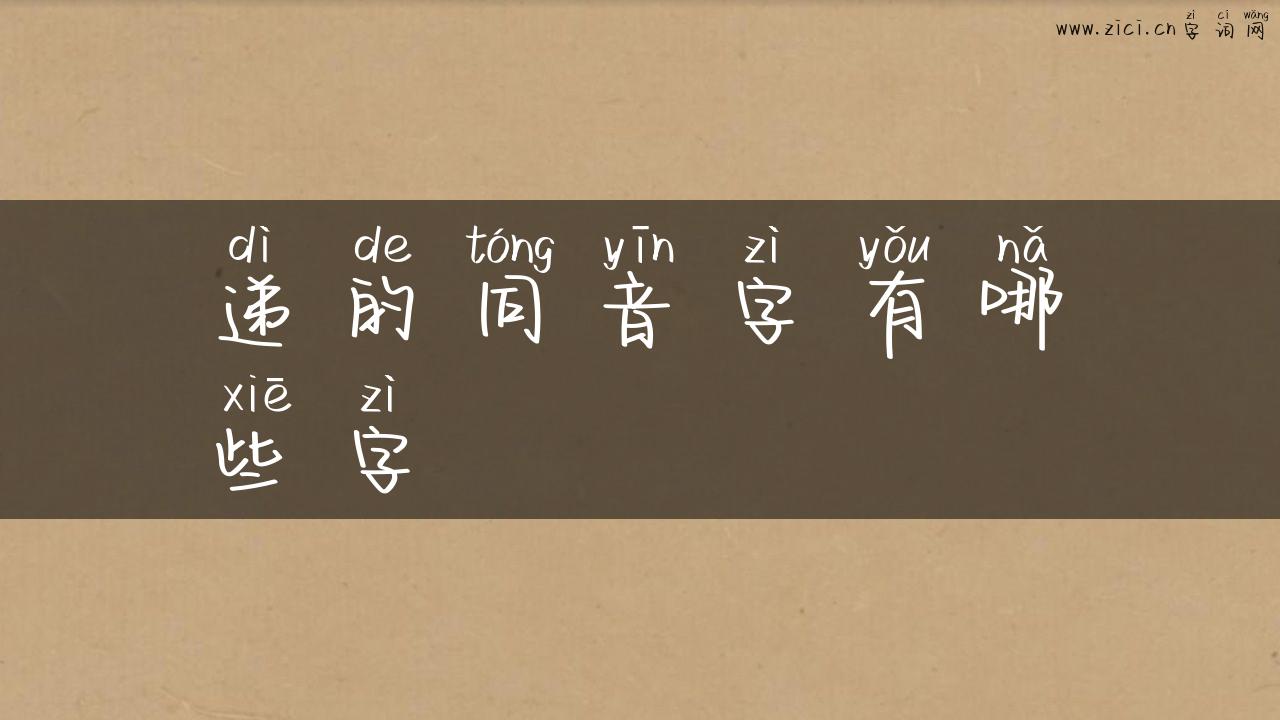 zì cí wǎng
www.zici.cn 字词网
dì de tóng yīn zì yǒu nǎ
递的同音字有哪
xiē zì
些字